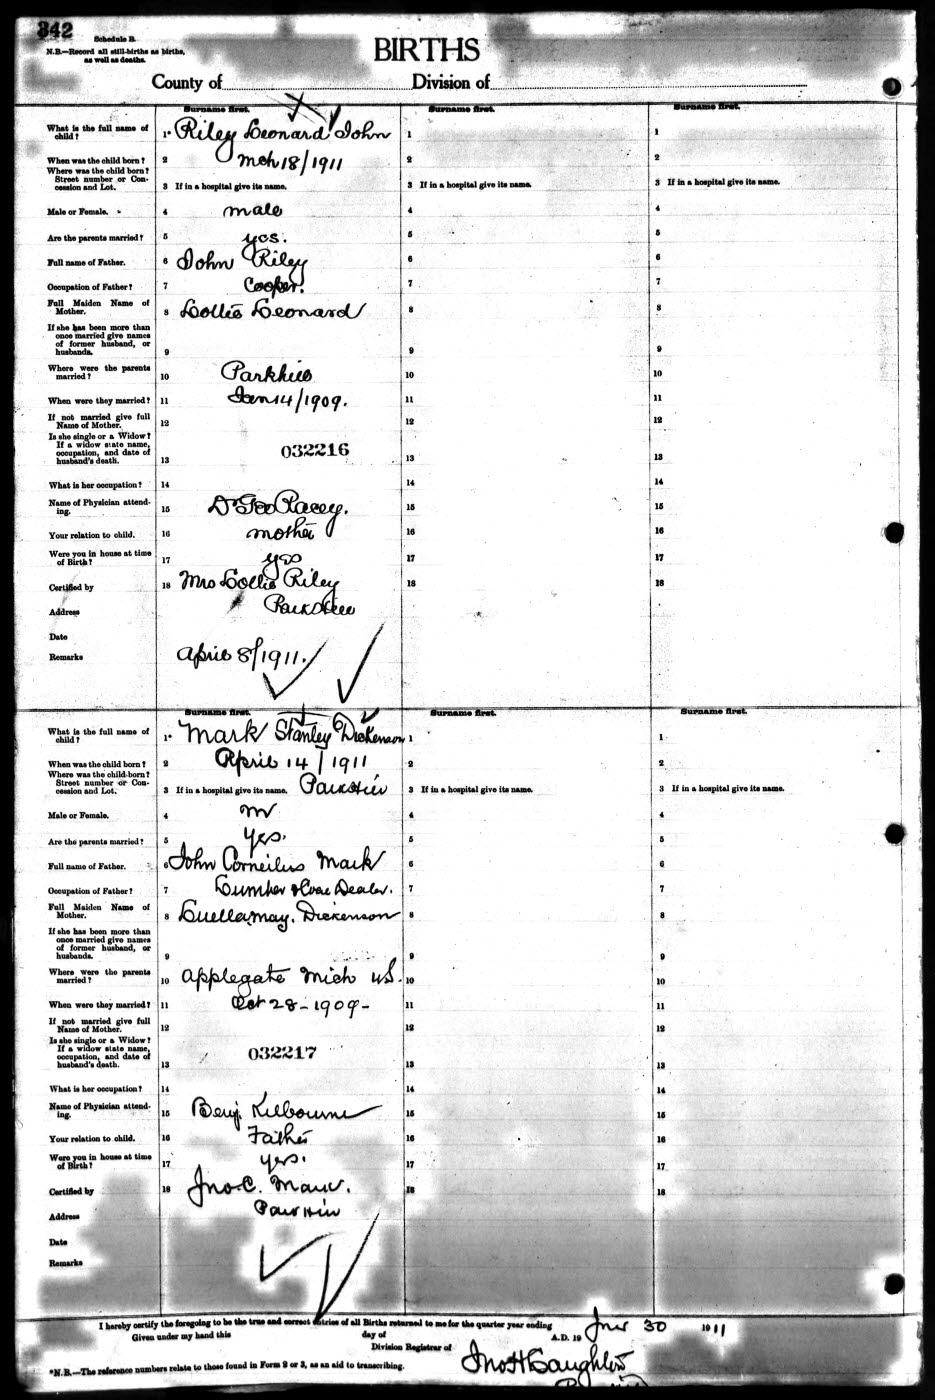 342
Schedule B.
N.B.—Record all still-births as births,
as well as deaths.
BIRTHS
County of Division of
Surname first. Surname first. Surname first.
What is the full name of
child? 1* Riley Leonard John 1 1
When was the child born? 2 Mch 18/1911 2 2
Where was the child born?
Street number or Con-
cession and Lot. 3 If in a hospital give its name. 3 If in a hospital give its name. 3 If in a hospital give its name.
Male or Female. 4 male 4 4
Are the parents married? 5 yes. 5 5
Full name of Father. 6 John Riley 6 6
Occupation of Father? 7 Cooper. 7 7
Full Maiden Name of
Mother. 8 Lottie Leonard 8 8
If she has been more than
once married give names
of former husband, or
husbands. 9 9 9
Where were the parents
married? 10 Parkhill 10 10
When were they married? 11 Jan 14/1909. 11 11
If not married give full
Name of Mother. 12 12 12
Is she single or a Widow?
If a widow state name,
occupation, and date of
husband's death. 13 032216 13 13
What is her occupation? 14 14 14
Name of Physician attend-
ing. 15 Dr Geo Racey. 15 15
Your relation to child. 16 mother 16 16
Were you in house at time
of Birth? 17 yes 17 17
Certified by 18 Mrs Lottie Riley 18 18
Address Parkhill
Date
Remarks April 8/1911.
Surname first. Surname first. Surname first.
What is the full name of
child? 1* Mark Stanley Dickenson 1 1
When was the child born? 2 April 14/1911 2 2
Where was the child born?
Street number or Con-
cession and Lot. 3 If in a hospital give its name. Parkhill 3 If in a hospital give its name. 3 If in a hospital give its name.
Male or Female. 4 M 4 4
Are the parents married? 5 yes. 5 5
Full name of Father. 6 John Corneilus Mark 6 6
Occupation of Father? 7 Lumber & Coal Dealer. 7 7
Full Maiden Name of
Mother. 8 Luella May. Dickenson 8 8
If she has been more than
once married give names
of former husband, or
husbands. 9 9 9
Where were the parents
married? 10 Applegate Mich US. 10 10
When were they married? 11 Oct 28-1909- 11 11
If not married give full
Name of Mother. 12 12 12
Is she single or a Widow?
If a widow state name,
occupation, and date of
husband's death. 13 032217 13 13
What is her occupation? 14 14 14
Name of Physician attend-
ing. 15 Benj. Kilbourne 15 15
Your relation to child. 16 Father 16 16
Were you in house at time
of Birth? 17 yes. 17 17
Certified by 18 Jno. C. Mark. 18 18
Address Parkhill
Date
Remarks
I hereby certify the foregoing to be the true and correct entries of all Births returned to me for the quarter year ending June 30 1911
Given under my hand this day of A.D. 19
Division Registrar of Jno H Laughton
*N.B.—The reference numbers relate to those found in Form 2 or 3, as an aid to transcribing.